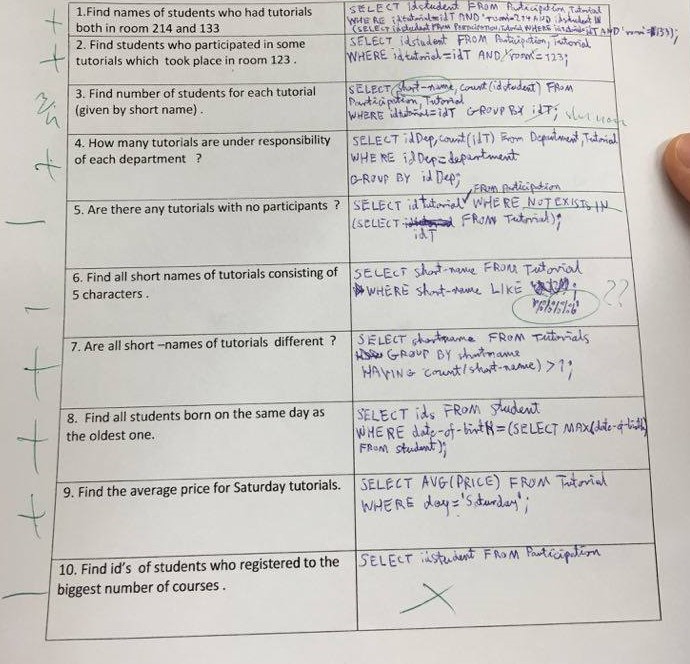 1.Find names of students who had tutorials
both in room 214 and 133
SELECT idstudent FROM Participation, Tutorial
WHERE idtutorial=idT AND room=214 AND idstudent IN
(SELECT idstudent FROM Participation, Tutorial WHERE idtutorial=idT AND room=133);
2. Find students who participated in some
tutorials which took place in room 123 .
SELECT idstudent FROM Participation, Tutorial
WHERE idtutorial=idT AND room=123;
3. Find number of students for each tutorial
(given by short name) .
SELECT short-name, count(idstudent) FROM
Participation, Tutorial
WHERE idtutorial=idT GROUP BY idT;
4. How many tutorials are under responsibility
of each department ?
SELECT idDep, count(idT) From Department, Tutorial
WHERE idDep=department
GROUP BY idDep;
5. Are there any tutorials with no participants ?
FROM Participation
SELECT idtutorial WHERE NOT EXISTS IN
(SELECT FROM Tutorial);
idT
6. Find all short names of tutorials consisting of
5 characters .
SELECT short-name FROM Tutorial
WHERE short-name LIKE
??
7. Are all short –names of tutorials different ?
SELECT shortname FROM Tutorials
GROUP BY shortname
HAVING count(short-name) >1;
8. Find all students born on the same day as
the oldest one.
SELECT ids FROM student
WHERE date-of-birth=(SELECT MAX(date-of-birth)
FROM student);
9. Find the average price for Saturday tutorials.
SELECT AVG(PRICE) FROM Tutorial
WHERE day='Saturday';
10. Find id's of students who registered to the
biggest number of courses .
SELECT idstudent FROM Participation